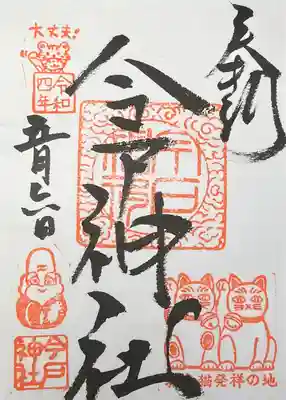 奉拝
今戸神社
大丈夫!
令和四年
五月六日
今戸神社
今戸神社
猫発祥の地